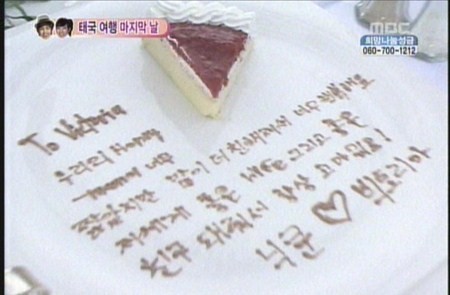 태국 여행 마지막 날
MBC
희망나눔성금
060-700-1212
To Victoria
우리의 Honey
moon 너무
짧았지만 맘이 더 친해져서 너무
저에게 좋은 wife 그리고 좋은
친구 돼줘서 항상 고마워요!
닉쿤 ♡ 빅토리아